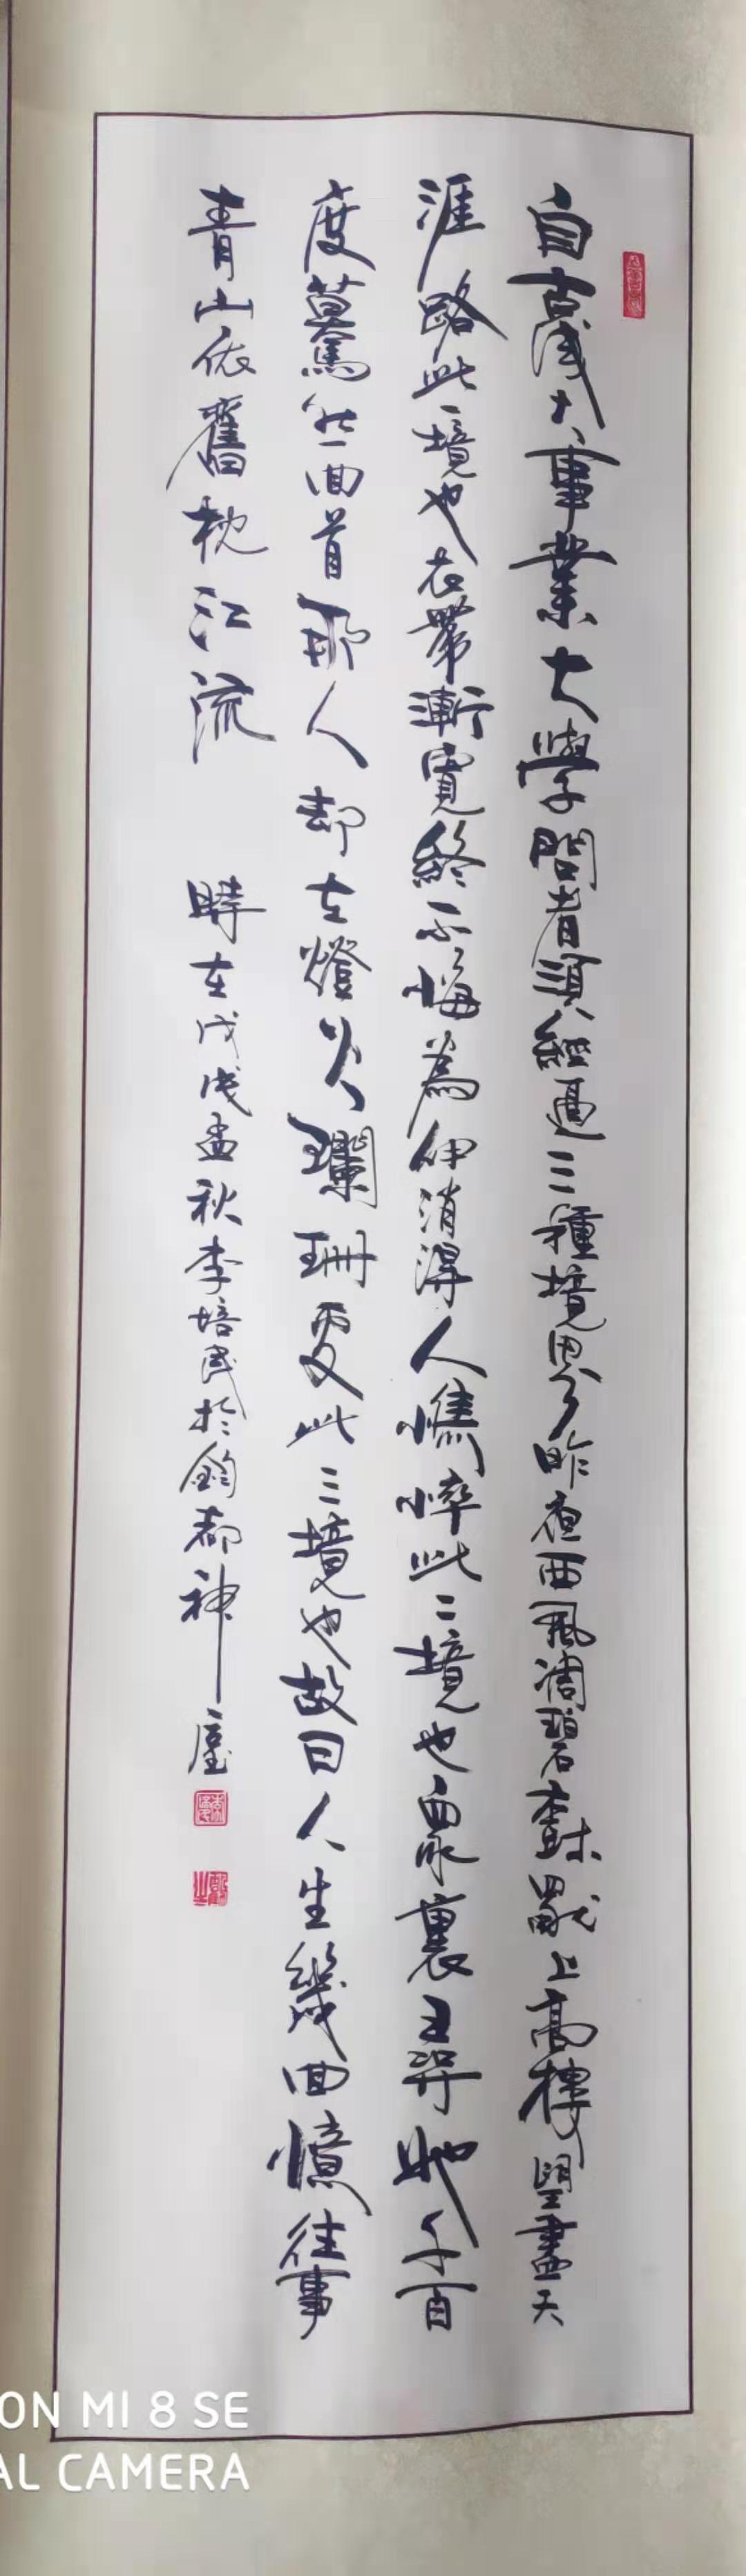 自古成大事業大學問者須經過三種境界昨夜西風凋碧樹獨上高樓望盡天
涯路此一境也衣帶漸寬終不悔為伊消得人憔悴此二境也眾裏尋她千百
度驀然回首那人却在燈火瓓珊處此三境也故曰人生幾回憶往事
青山依舊枕江流 時在戊戌孟秋李培民於鈞都神垕
ON MI 8 SE
AL CAMERA